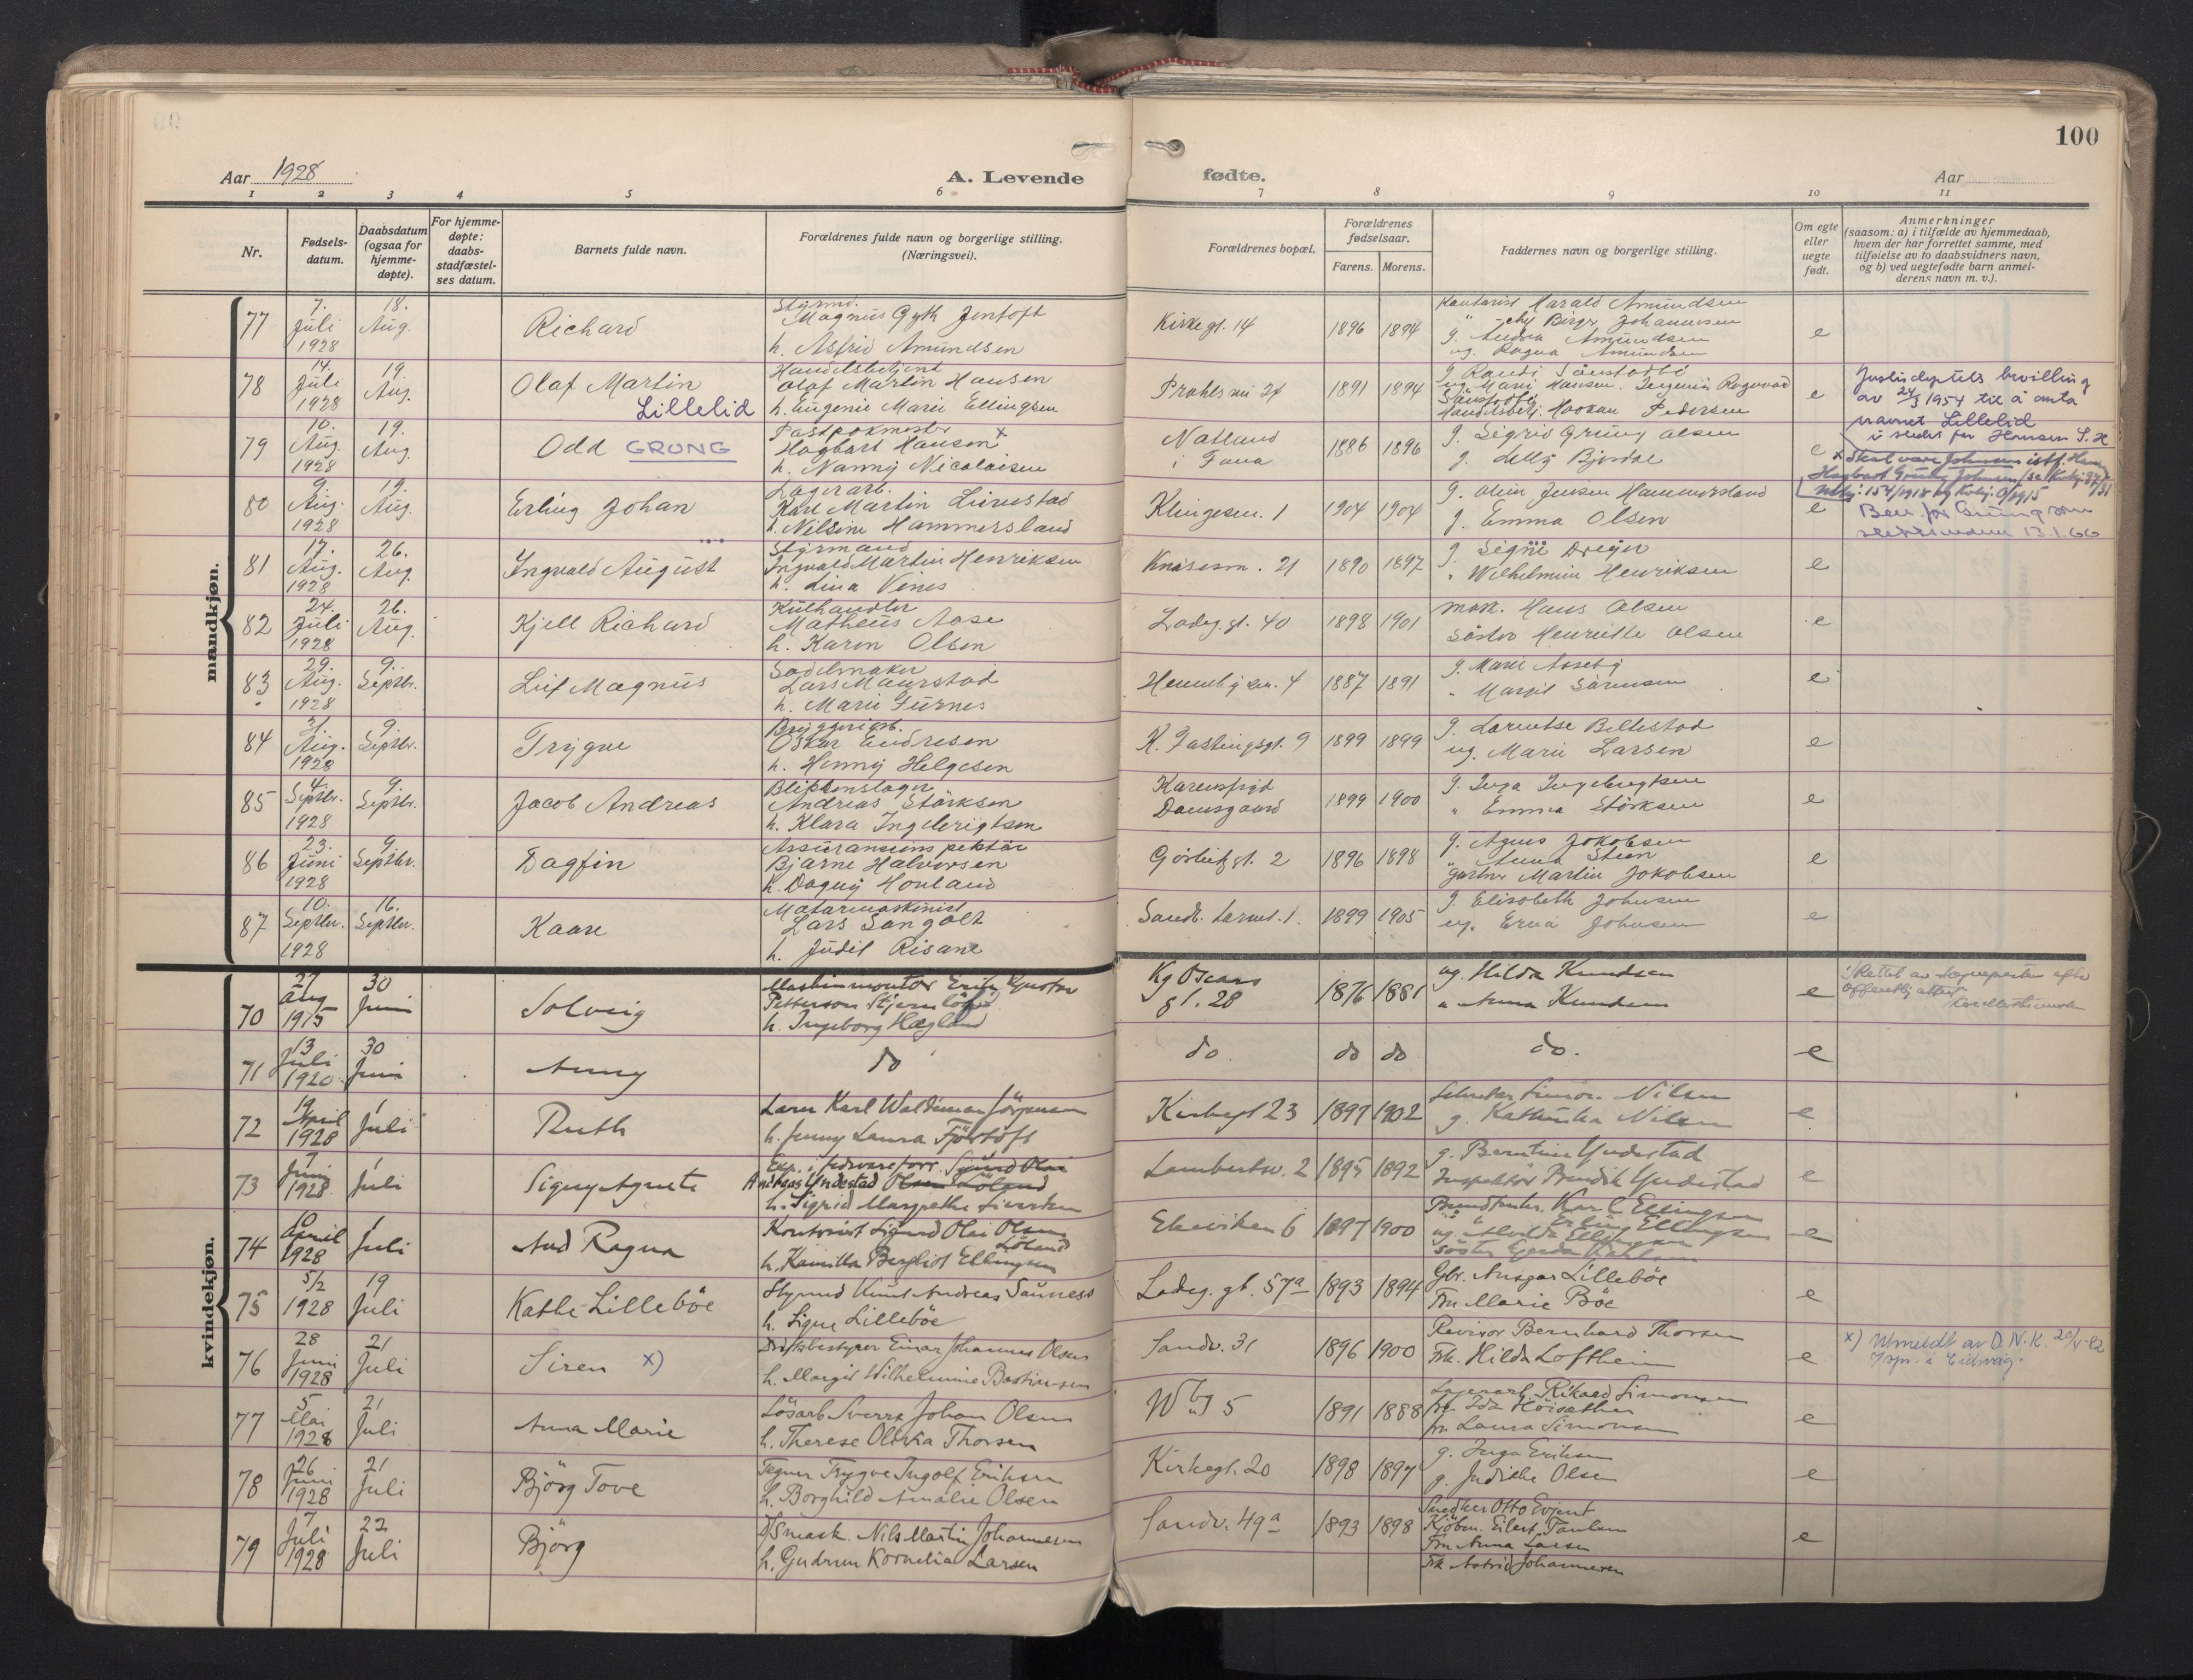 100
Aar 1928
A. Levende
fødte.
Aar
1 2 3 4 5 6 7 8 9 10 11
Nr.
Fødsels-
datum.
Daabsdatum
(ogsaa for
hjemme-
døpte).
For hjemme-
døpte:
daabs-
stadfæstel-
ses datum.
Barnets fulde navn.
Forældrenes fulde navn og borgerlige stilling.
(Næringsvei).
Forældrenes bopæl.
Forældrenes
fødselsaar.
Farens. Morens.
Faddernes navn og borgerlige stilling.
Om egte
eller
uegte
født.
Anmerkninger
(saasom: a) i tilfælde av hjemmedaab,
hvem der har forrettet samme, med
tilføielse av to daabsvidners navn,
og b) ved uegtefødte barn anmel-
derens navn m. v.).
mandkjøn.
77
7.
Juli
1928
18.
Aug.
Richard
Styrmd.
Magnus Gyth Jentoft
h. Astrid Amundsen
Kirkegt. 14
1896 1894
Kontorist Harald Amundsen
Birger Johannesen
g. Andrea Amundsen
ug. Ragna Amundsen
e
78
14.
Juli
1928
19.
Aug.
Olaf Martin
Lillelid
Handelsbetjent
Olaf Martin Hansen
h. Eugenie Marie Ellingsen
24
1891 1894
g. Randi
ug. Marie Hansen. Ingenia
Handelsbetj. Haakon Pedersen
e
Justisdeptets bevilling
av 24/3 1954 til å anta
navnet Lillelid
i stedet for Hansen S.H
79
10.
Aug.
1928
19.
Aug.
Odd GRUNG
Postpakmester x
Hagbart Hansen
h. Nanny Nicolaisen
Natland
i Fana
1886 1896
g. Sigrid Grung Olsen
g. Lilly Bjordal
e
x Skal være Johnsen istf.
Hagbart Grung Johnsen
Bev. for Grung som
slektsnavn 13.1.66
80
9.
Aug.
1928
19.
Aug.
Erling Johan
Lagerarb.
Karl Martin Lirnestad
h. Nilsine Hammersland
Klingesm. 1
1904 1904
g. Jensen Hammersland
g. Emma Olsen
e
81
17.
Aug.
1928
26.
Aug.
Ingvald August
Styrmand
Ingvald Martin Henriksen
h. Lina Venes
Knøsesm. 21
1890 1897
g. Signe Dreyer
" Wilhelmine Henriksen
e
82
24.
Juli
1928
26.
Aug.
Kjell Richard
Kulhandler
Matheus Aase
h. Karen Olsen
Ladeg. gt. 40
1898 1901
mask. Hans Olsen
Søster Henriette Olsen
e
83
29.
Aug.
1928
9.
Septbr.
Leif Magnus
Sadelmaker
Lars Maurstad
h. Marie Furnes
4
1887 1891
g. Marie Aaseby
" Margit Sørensen
e
84
31.
Aug.
1928
9.
Septbr.
Trygve
Bryggeriarb.
Oskar Endresen
h. Henny Helgesen
K. Fastingsgt. 9
1899 1899
g. Lorentse Beltestad
ug. Marie Larsen
e
85
4.
Septbr.
1928
9.
Septbr.
Jacob Andreas
Blikkenslager
Andreas Störksen
h. Klara Ingebrigtsen
Karensfryd
Damsgaard
1899 1900
g. Inga Ingebrigtsen
" Emma Störksen
e
86
23.
Juni
1928
9.
Septbr.
Dagfin
Assuranseinspektør
Bjarne Halvorsen
h. Dagny Hovland
Gørbitzgt. 2
1896 1898
g. Agnes Jakobsen
" Anna Steen
gartner Martin Jakobsen
e
87
10.
Septbr.
1928
16.
Septbr.
Kaare
Motormaskinist
Lars Sangolt
h. Judit Risane
1.
1899 1905
g. Elisabeth Johnsen
ug. Erna Johnsen
e
kvindekjøn.
70
27
Aug
1915
30
Juni
Solveig
Maskinmontør Erik Gustav
Petterson Stjernlöf
h. Ingeborg Hægland
Kg Oscars
gt. 28
1876 1881
ug. Hilda Knudsen
" Anna Knudsen
e
Rettet av sogneprester efter
offentlig attest
71
13
Juli
1920
30
Juni
Anny
do
do.
do do
do.
e
72
19
April
1928
1
Juli
Ruth
Karl Waldemar Jörgensen
h. Jenny Laura Fjörtoft
Kirkegt 23
1897 1902
Simon Nilsen
g. Kathinka Nilsen
e
73
7
Juni
1928
1
Juli
Signy Agnete
Exp. i jedvareforr. Sigurd Olai
Andreas Yndestad Olsen Löland
h. Sigrid Margrethe Sivertsen
Lambertsv. 2
1895 1892
g. Berntine Yndestad
Inspektör Bendik Yndestad
e
74
10
April
1928
1
Juli
Aud Ragna
Kontorist Sigurd Olai Olsen
Löland
h. Kamilla Bergliot Ellingsen
Ekeviken 6
1897 1900
Karl Ellingsen
" Erling Ellingsen
ug. Alvilda Ellingsen
Söster Gerda
e
75
5/2
1928
19
Juli
Kathe Lilleböe
Styrmd Knut Andreas Sauness
h. Signe Lilleböe
Ladeg. gt. 57a
1893 1894
Gbr. Ansgar Lilleböe
Fru Marie Böe
e
76
28
Juni
1928
21
Juli
Siren x)
Driftsbestyrer Einar Johannes Olsen
h. Margit Wilhelmine Bastiansen
Sandv. 31
1896 1900
Revisor Bernhard Thorsen
Frk. Hilda Loftheim
e
x) Utmeldt av D.N.K. 20/4-82
7 spr. i Eidsvåg.
77
5
Mai
1928
21
Juli
Anna Marie
Lösarb Sverre Johan Olsen
h. Therese Olivia Thorsen
5
1891 1888
Lagerarb Rikard Simonsen
fr. Ida Höisæther
fru Laura Simonsen
e
78
26
Juni
1928
21
Juli
Björg Tove
Tegner Trygve Ingolf Eriksen
h. Borghild Amalie Olsen
Kirkegt. 20
1898 1897
g. Inga Eriksen
g. Judithe Olsen
e
79
7
Juli
1928
22
Juli
Björg
D/Smask. Nils Martin Johannesen
h. Gudrun Kornelia Larsen
Sandv. 49a
1893 1898
Snedker Otto Evjent
Kjöbm. Eilert Paulsen
Fru Anna Larsen
Frk Astrid Johannesen
e